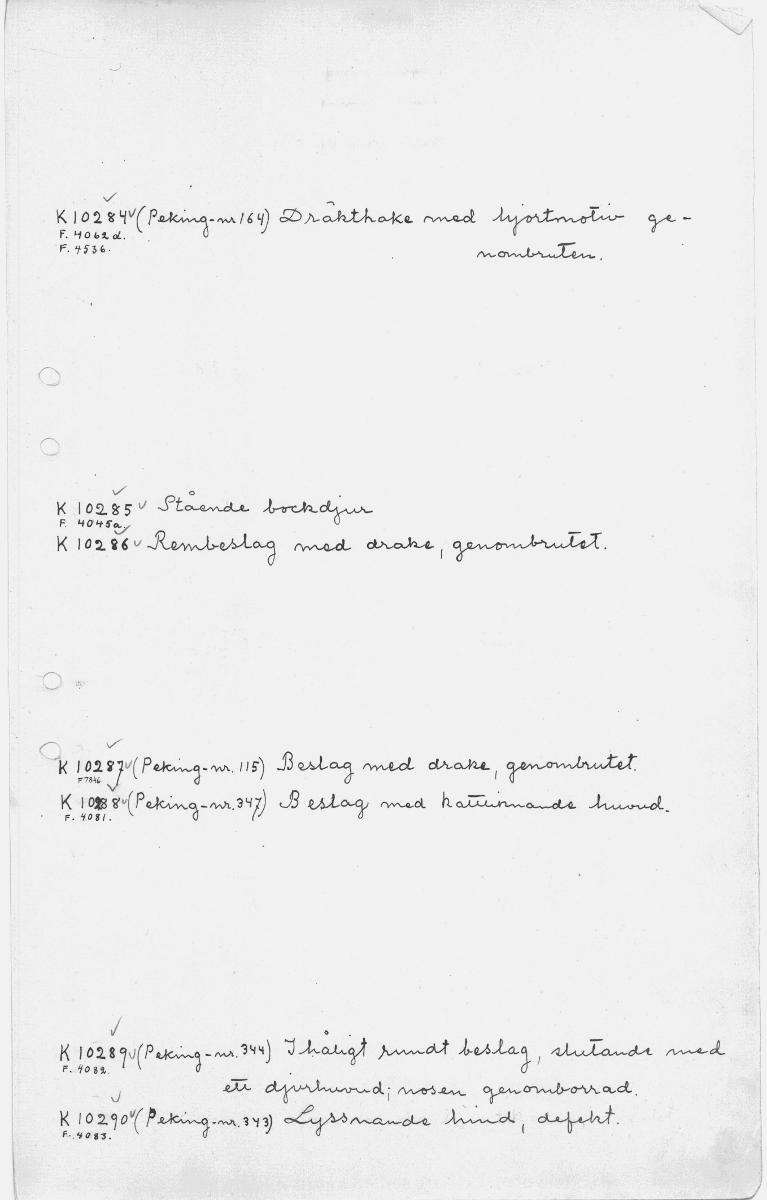 K 10284 v (Peking-nr 164) Dräkthake med hjortmotiv ge-
F. 4062 d.
F. 4536.
nombruten.
K 10285 v Stående bockdjur
F. 4045a.
K 10286 v Rembeslag med drake, genombrutet.
K 10287 v (Peking-nr. 115) Beslag med drake, genombrutet.
F 7846
K 10288 v (Peking-nr. 347) Beslag med kattliknande huvud.
F. 4081.
K 10289 v (Peking-nr. 344) Ihåligt rundt beslag, slutande med
F. 4082.
ett djurhuvud; nosen genomborrad.
K 10290 v (Peking-nr. 343) Lyssnande hind, defekt.
F. 4083.